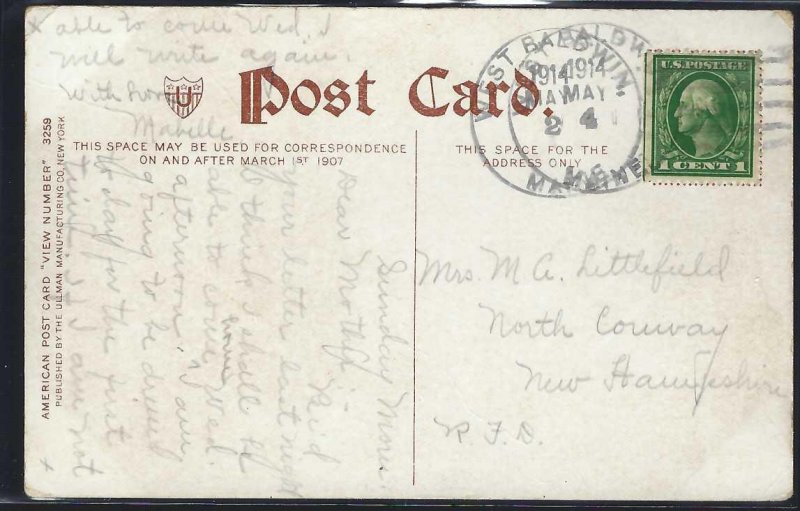 Post Card.
THIS SPACE MAY BE USED FOR CORRESPONDENCE
ON AND AFTER MARCH 1ST 1907
THIS SPACE IS FOR THE
ADDRESS ONLY
U
AMERICAN POST CARD "VIEW NUMBER" 3259
PUBLISHED BY THE ULLMAN MANUFACTURING CO. NEW YORK
WEST BALDWIN
1914 1914
MAY MAY
2 4
MAINE
U.S. POSTAGE
1 CENT 1
Mrs. M A. Littlefield
North Conway
New Hampshire
R. F. D.
Sunday Morn.
Dear Mother
Rec'd
your letter last night
I think I shall be
able to come home Wed.
afternoon. I am
going to be dressed
to day for the first
time. If I am not
x able to come Wed. I
will write again.
With love
Mabelle
x